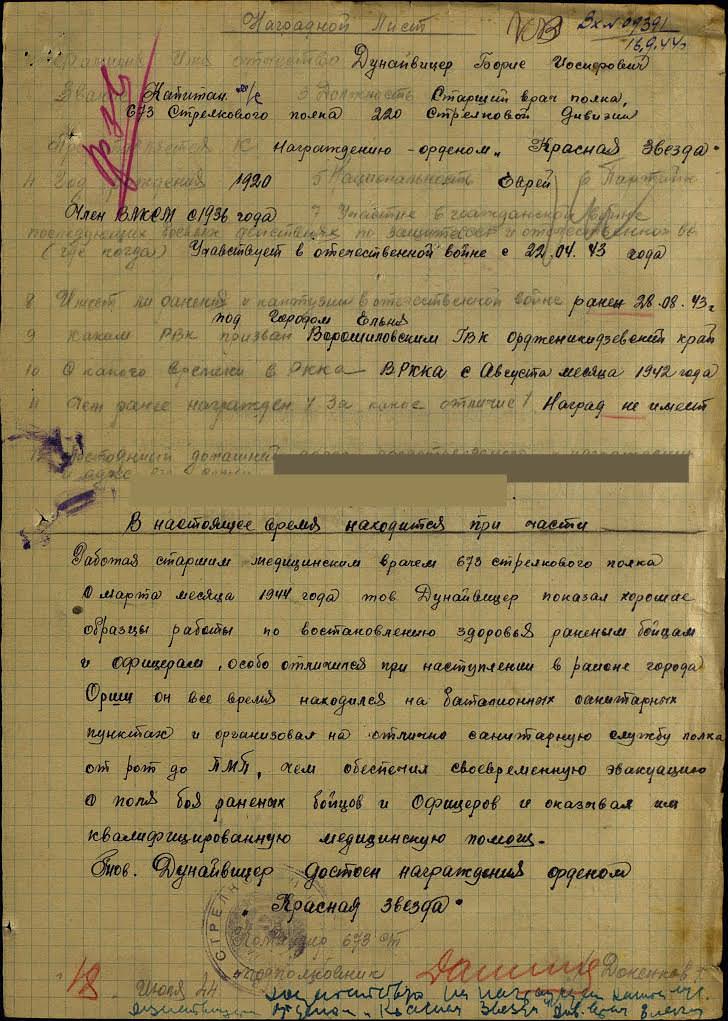 Наградной Лист
Вх№09391
16.9.44г
Фамилия Имя отчество Дунайвицер Борис Иосифович
Звание Капитан м/с 3 Должность Старший врач полка,
673 Стрелкового полка 220 Стрелковой Дивизии
Представляется к награждению - орденом „ Красная Звезда"
4 Год рождения 1920 5 Национальность Еврей 6 Партийн
Член ВЛКСМ с 1936 года 7 Участие в гражданской войне
последующих боевых действиях по защите СССР и отечественной во
(где когда) Учавствует в отечественной войне с 22.04.43 года
8 Имеет ли ранения и контузии в отечественной войне ранен 28.08.43г
под городом Ельня
9 Каким РВК призван Ворошиловским ГВК Орджениkидзевский край
10 С какого времени в РККА - В РККА с Августа месяца 1942 года
11 Чем ранее награжден / За какое отличие / Наград не имеет
12 Постоянный домашний адрес представляемого к награждению
и адрес его семьи
В настоящее время находится при части
Работая старшим медицинским врачем 673 стрелкового полка
с марта месяца 1944 года тов Дунайвицер показал хорошие
образцы работы по востановлению здоровья раненым бойцам
и офицерам, особо отличился при наступлении в районе города
Орши он все время находился на баталионных санитарных
пунктах и организовал на отлично санитарную службу полка
от рот до ПМП, чем обеспечил своевременную эвакуацию
с поля боя раненых бойцов и Офицеров и оказывал им
квалифицированную медицинскую помощь.
Тов. Дунайвицер достоен награждения орденом
„ Красная звезда "
Командир 673 СП
подполковник
18 Июля 44